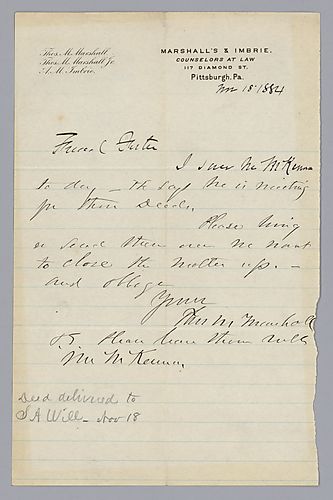 Thos. M. Marshall.
Thos. M. Marshall Jr.
A. M. Imbrie.
MARSHALL'S & IMBRIE,
COUNSELORS AT LAW
117 DIAMOND ST.
Pittsburgh, Pa.
Nov 18 1884
Friend
I saw Mr McKenna
to day - he says he is waiting
for them Deeds.
Please bring
or send them over we want
to close the matter up. -
and oblige
Yours
Thos M Marshall
P.S. please leave them with
Mr McKenna,
Deed delivered to
S A Will - Nov 18